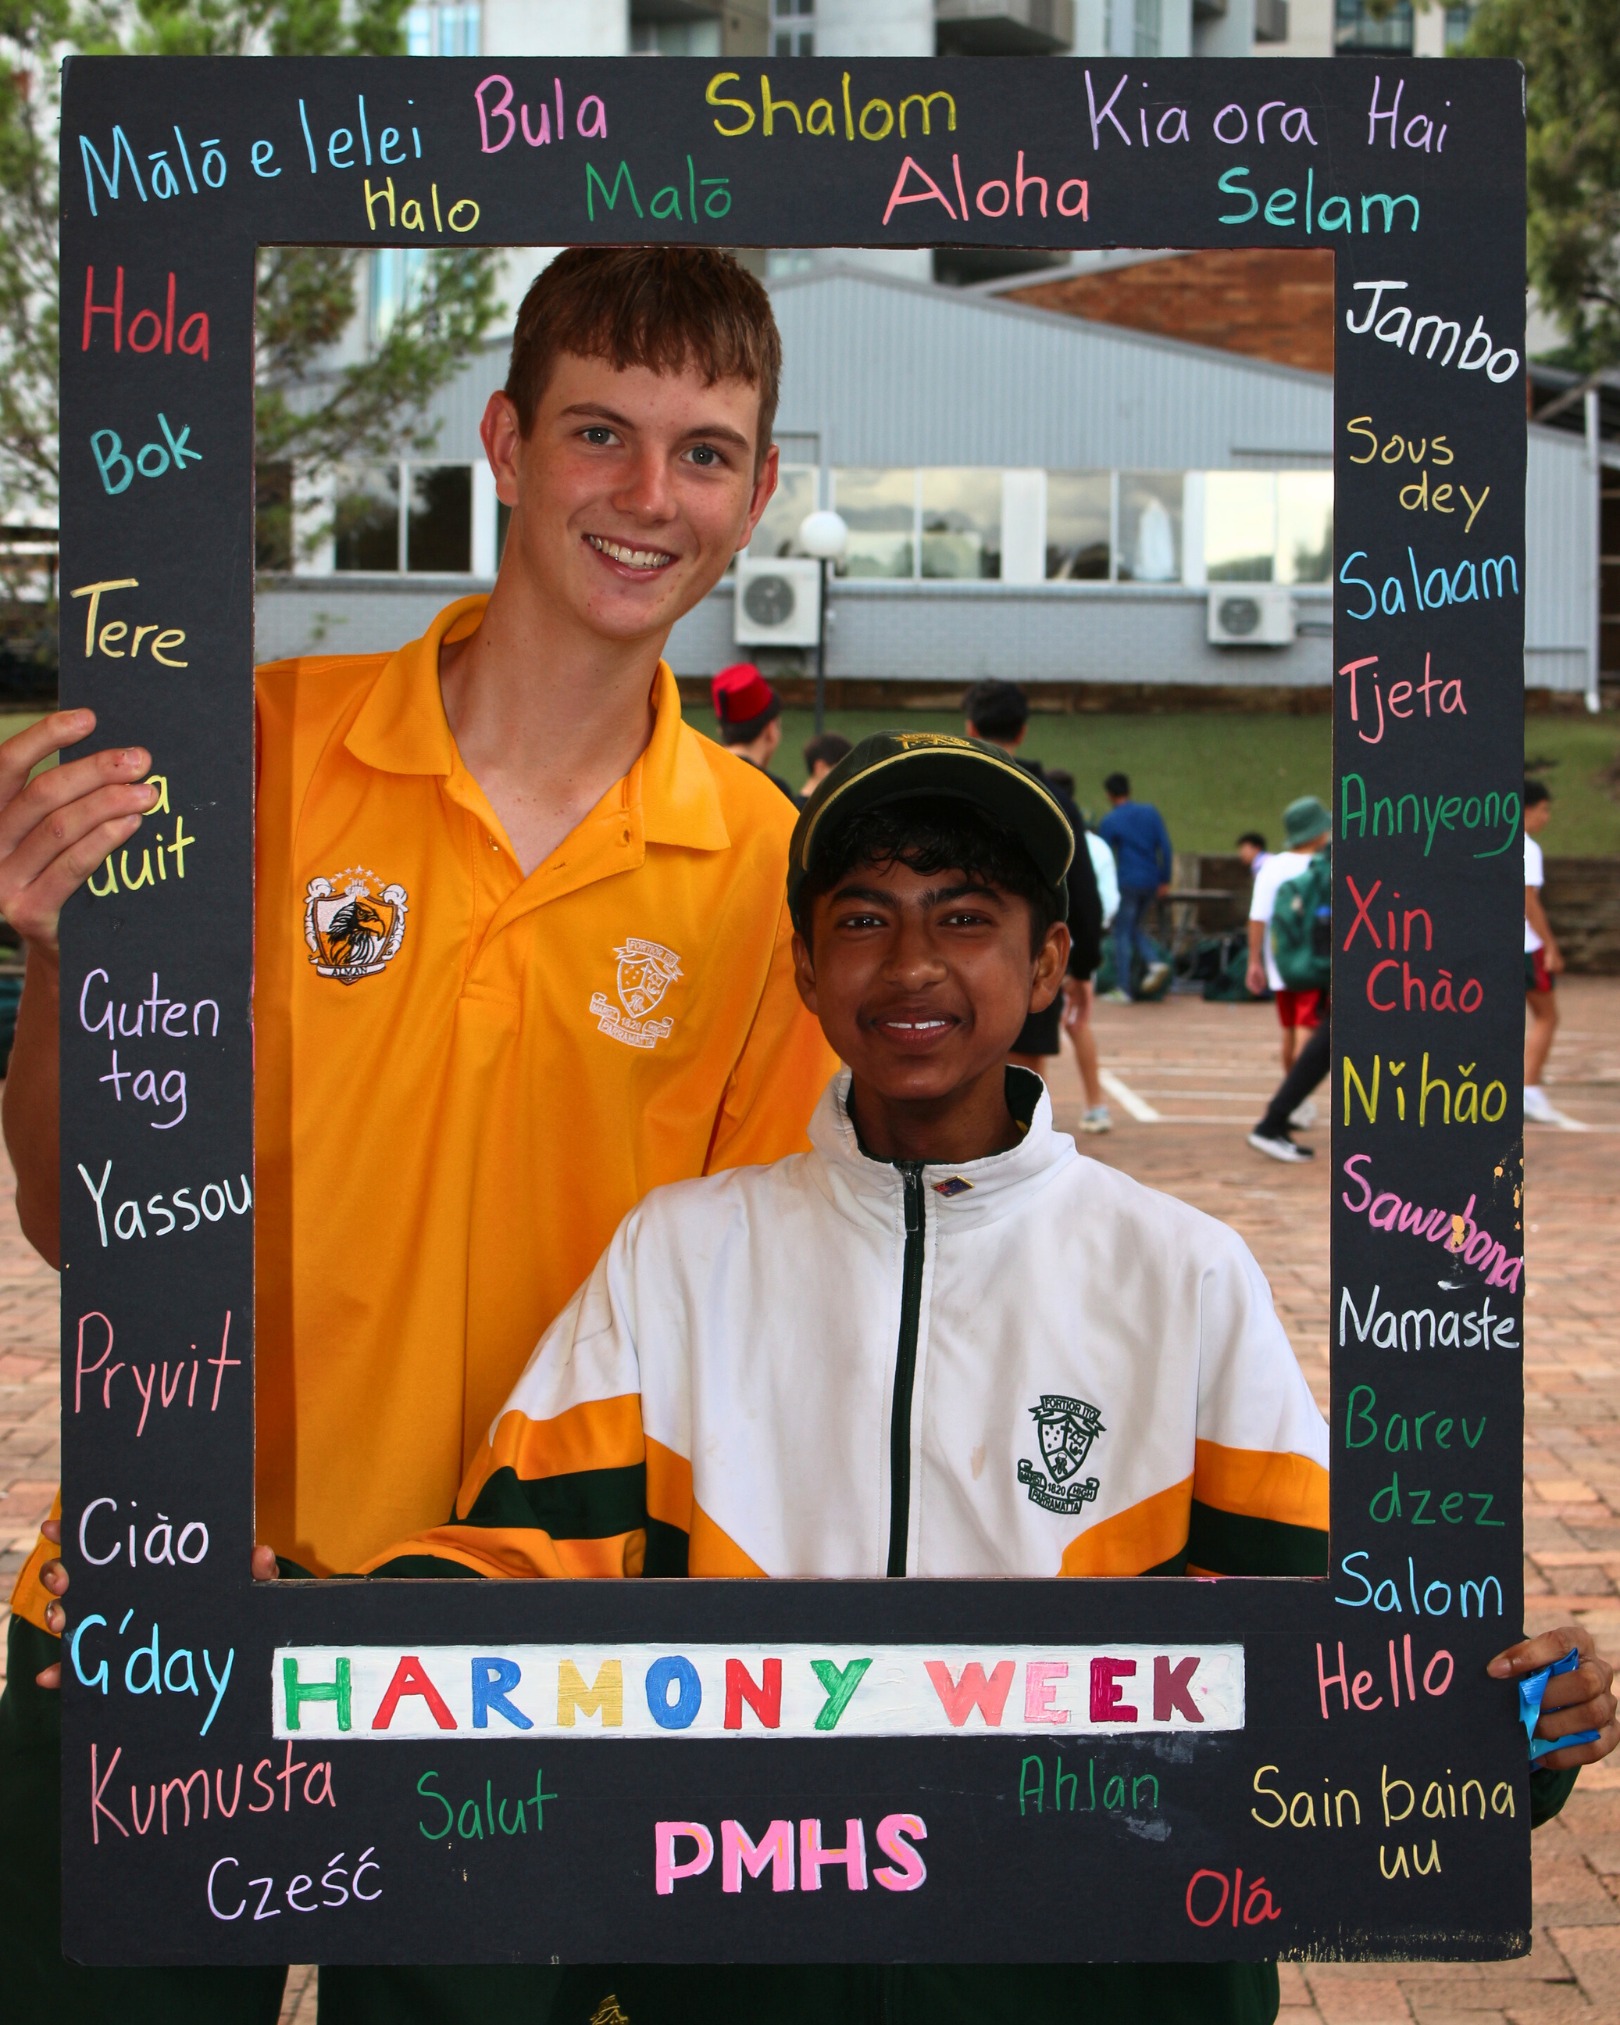 Mālō e lelei Bula Shalom Kia ora Hai
Halo Malō Aloha Selam
Hola
Bok
Tere
Guten
tag
Yassou
Pryvit
Ciào
G'day
Jambo
Sous
dey
Salaam
Tjeta
Annyeong
Xin
Chào
Nǐhǎo
Sawubona
Namaste
Barev
dzez
Salom
Hello
HARMONY WEEK
Kumusta Salut Ahlan Sain baina
uu
Cześć PMHS Olá
ALMAN
FORTIOR ITO
MARIST 1820 HIGH
PARRAMATTA
FORTIOR ITO
MARIST 1820 HIGH
PARRAMATTA